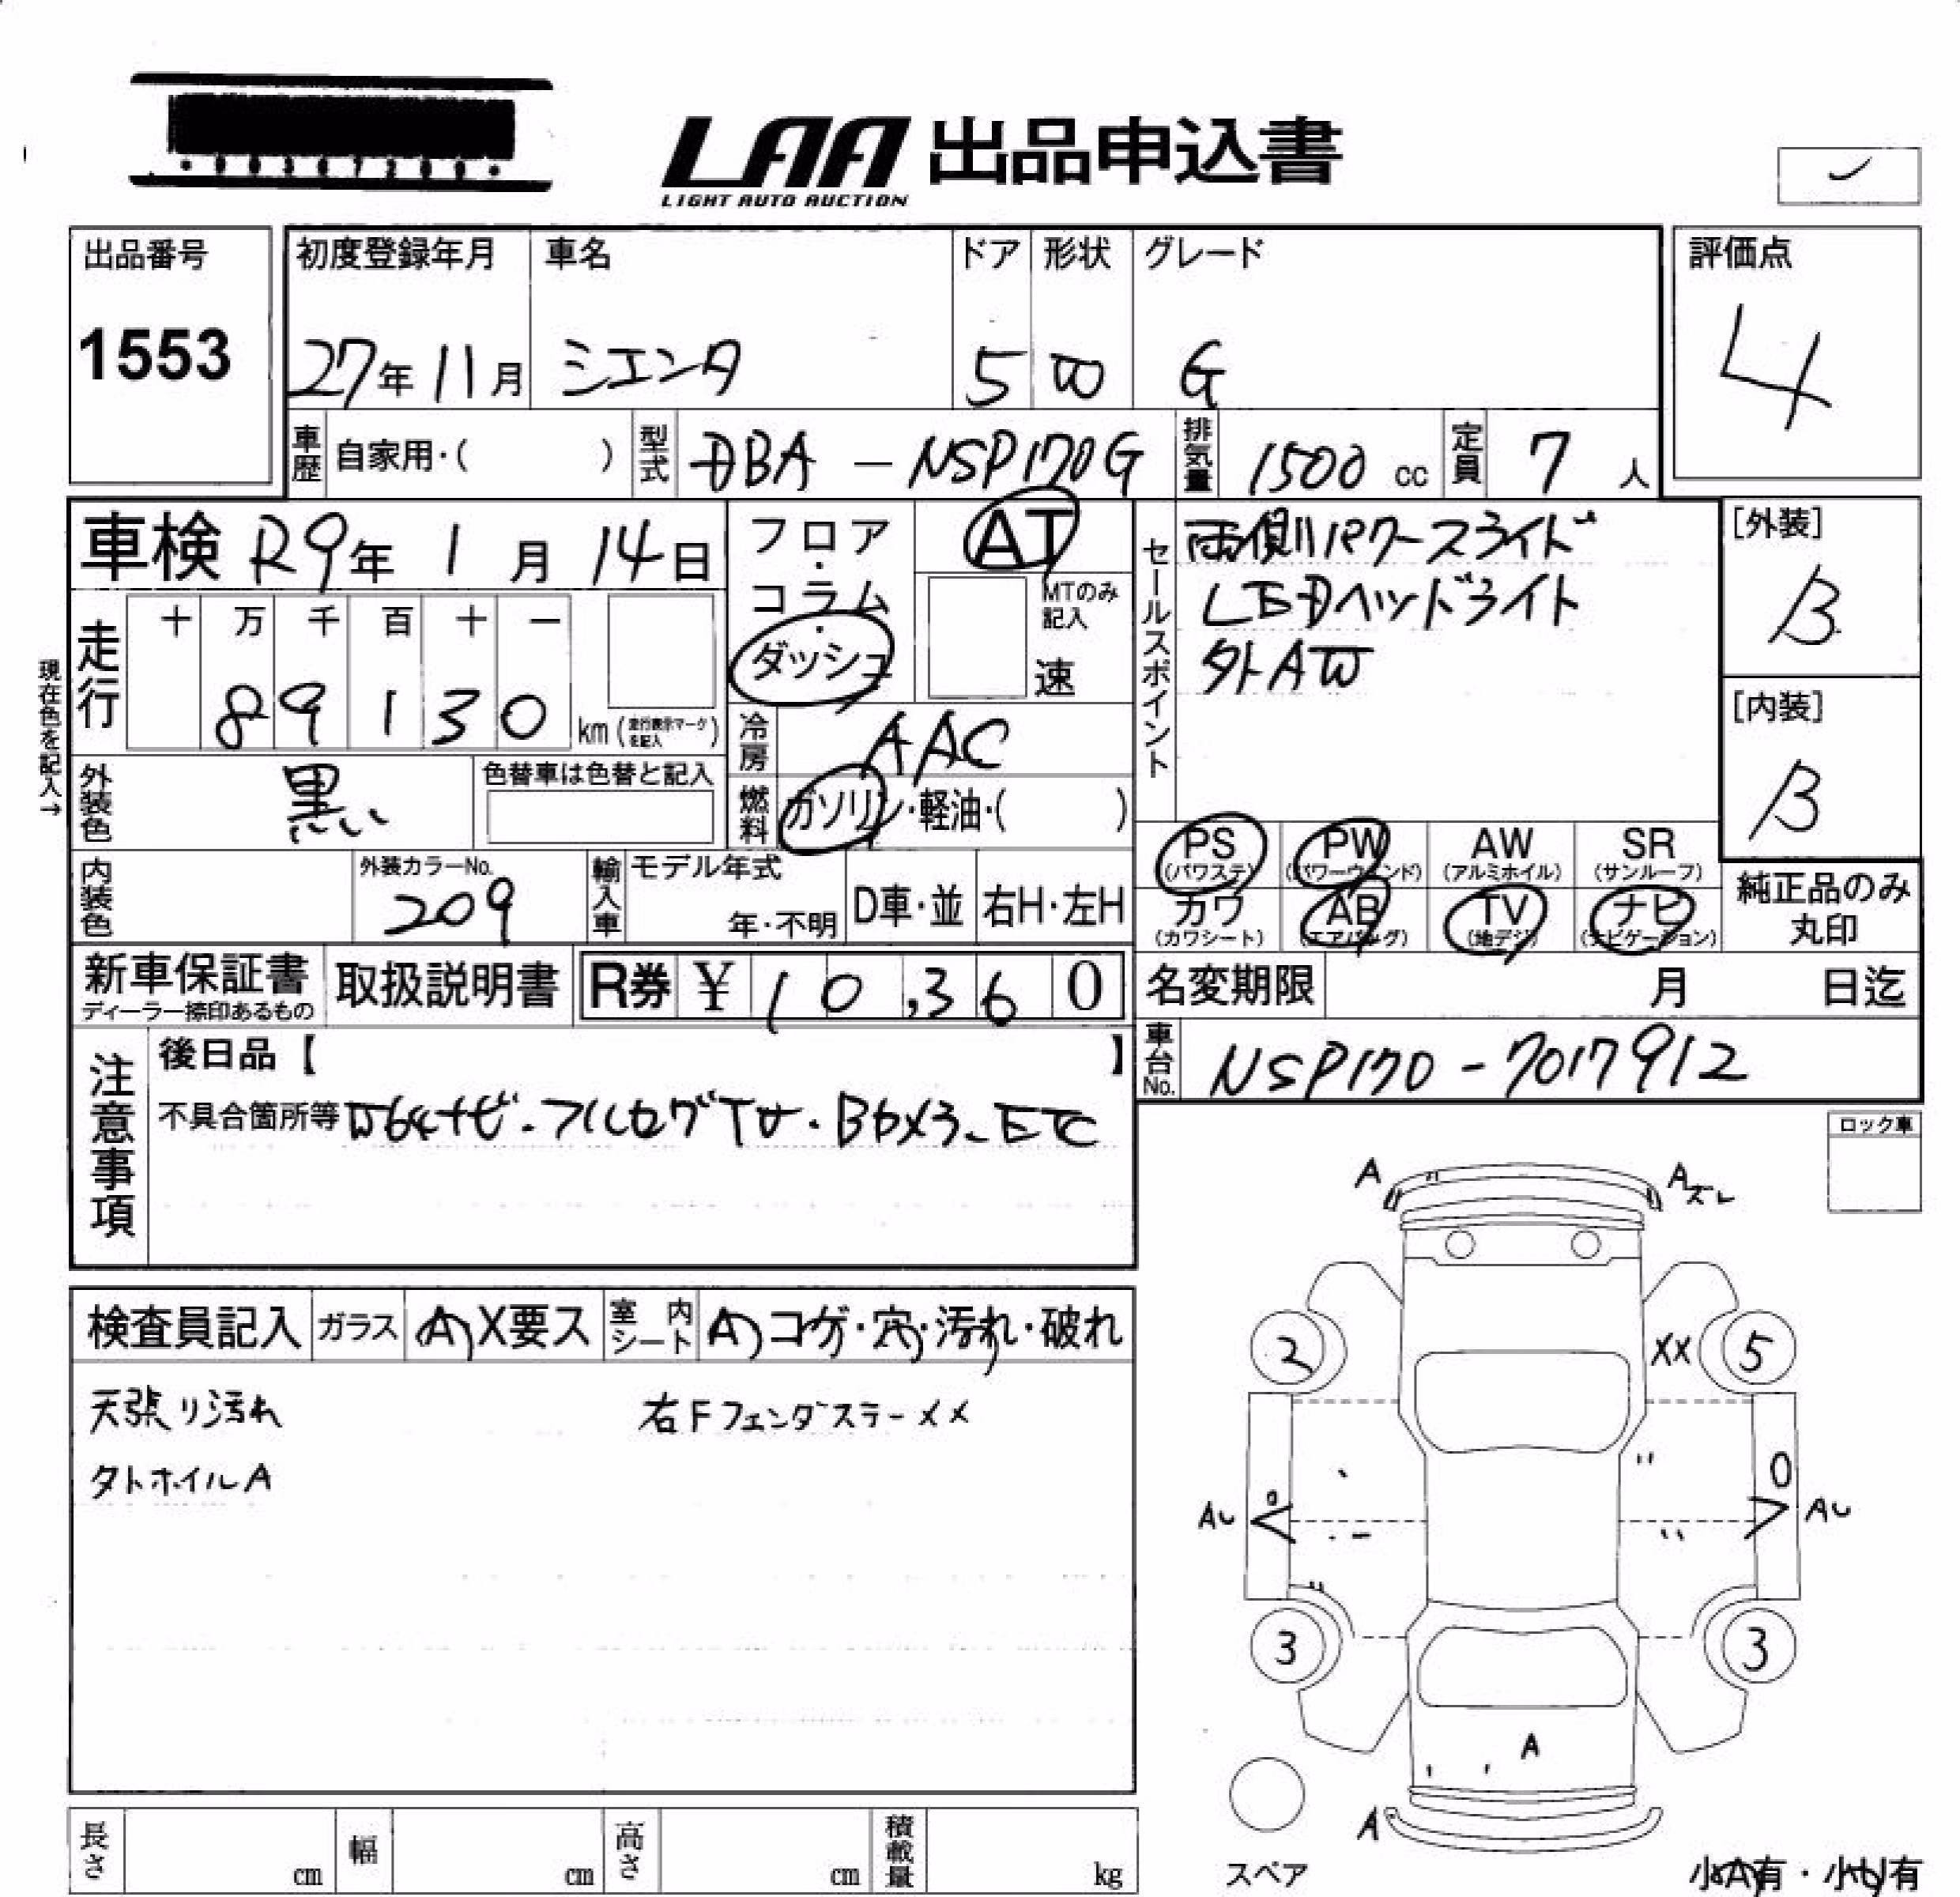 LAA 出品申込書
LIGHT AUTO AUCTION
出品番号
1553
初度登録年月
27年11月
車名
シエンタ
ドア
5
形状
W
グレード
G
評価点
4
車歴 自家用・( )
型式 DBA - NSP170G
排気量 1500 cc
定員 7 人
車検 R9年 1月 14日
フロア・コラム・ダッシュ
AT
MTのみ記入
速
セールスポイント
両側パワースライド
LEDヘッドライト
外AW
[外装]
B
[内装]
B
現在色を記入→
走行
十 万 千 百 十 一
8 9 1 3 0 km (走行表示マークを記入)
冷房 AAC
燃料 ガソリン・軽油・( )
外装色 黒
色替車は色替と記入
PS (パワステ)
PW (パワーウインド)
AW (アルミホイル)
SR (サンルーフ)
カワ (カワシート)
AB (エアバッグ)
TV (地デジ)
ナビ (ナビゲーション)
純正品のみ丸印
内装色
外装カラーNo.
209
輸入車 モデル年式
年・不明
D車・並
右H・左H
新車保証書
ディーラー捺印あるもの
取扱説明書
R券 ¥10,360
名変期限 月 日迄
車台No. NSP170-7017912
注意事項
後日品【 】
不具合箇所等 ナビ・フルセグTV・Bカメラ・ETC
ロック車
検査員記入
ガラス A X要ス
室内シート A コゲ・穴・汚れ・破れ
天張り汚れ
外ホイルA
右FフェンダーライナーXX
A
Aズレ
2
XX
5
AU
AU
3
3
A
A
スペア
小A有・小U有
長さ cm
幅 cm
高さ cm
積載量 kg